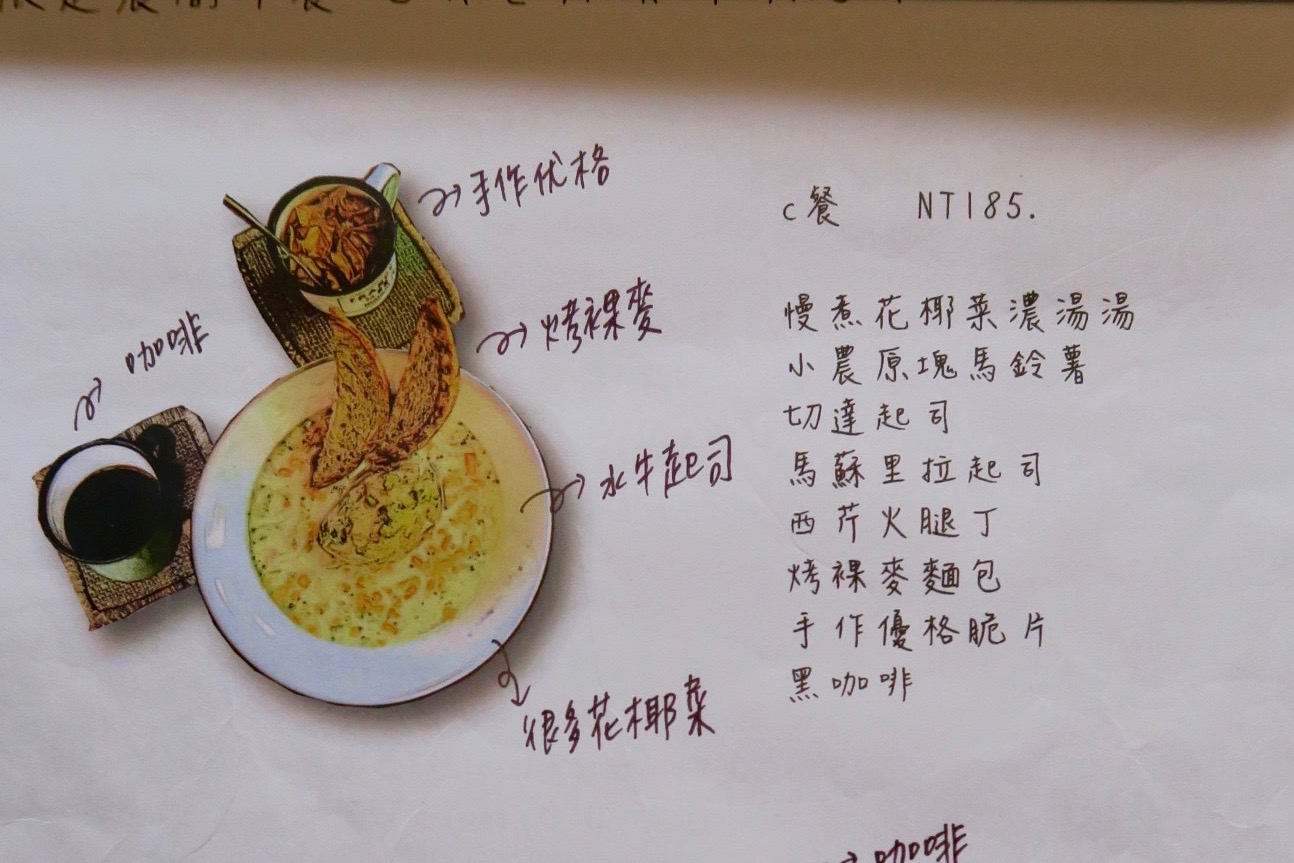 手作优格
烤裸麥
咖啡
水牛起司
很多花椰菜
c餐 NT185.
慢煮花椰菜濃湯湯
小農原塊馬鈴薯
切達起司
馬蘇里拉起司
西芹火腿丁
烤裸麥麵包
手作優格脆片
黑咖啡
咖啡